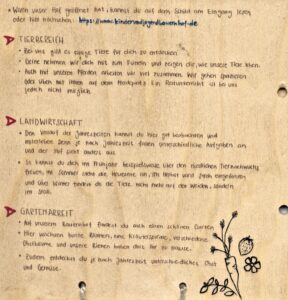 • Wann unser Hof geöffnet hat, kannst du auf dem Schild am Eingang lesen
oder hier nachsehen: https://www.kinderundjugendbauernhof.de
TIERBEREICH
• Bei uns gibt es einige Tiere für dich zu entdecken.
• Gerne nehmen wir dich mit zum Füttern und zeigen dir, wie unsere Tiere leben.
• Auch mit unseren Pferden arbeiten wir viel zusammen. Wir gehen spazieren
oder üben mit ihnen auf dem Reitplatz. Ein Reitunterricht ist bei uns
jedoch nicht möglich.
LANDWIRTSCHAFT
• Den Verlauf der Jahreszeiten kannst du hier gut beobachten und
miterleben. Denn je nach Jahreszeit fallen unterschiedliche Aufgaben an
und der Hof sieht anders aus.
• So kannst du dich im Frühjahr beispielsweise über den niedlichen Tiernachwuchs
freuen, im Sommer steht die Heuernte an, im Herbst wird Stroh eingefahren
und über Winter bleiben die Tiere nicht mehr auf der Weide, sondern
im Stall.
GARTENARBEIT
• Auf unserem Bauernhof findest du auch einen schönen Garten.
• Hier wachsen bunte Blumen, eine Kräuterspirale, verschiedene
Obstbäume und unsere Bienen haben dort ihr zu Hause.
• Zudem entdeckst du je nach Jahreszeit unterschiedliches Obst
und Gemüse.